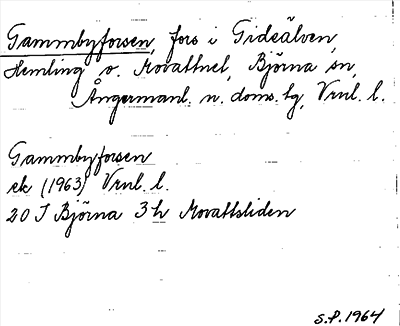 Gammbyforsen, fors i Gideälven,
Hemling o. Movattnet, Björna sn,
Ångermanl. n. doms. lg, Vrnl. l.
Gammbyforsen
ek (1963) Vrnl. l.
20 I Björna 3h Movattsliden
S.P. 1964